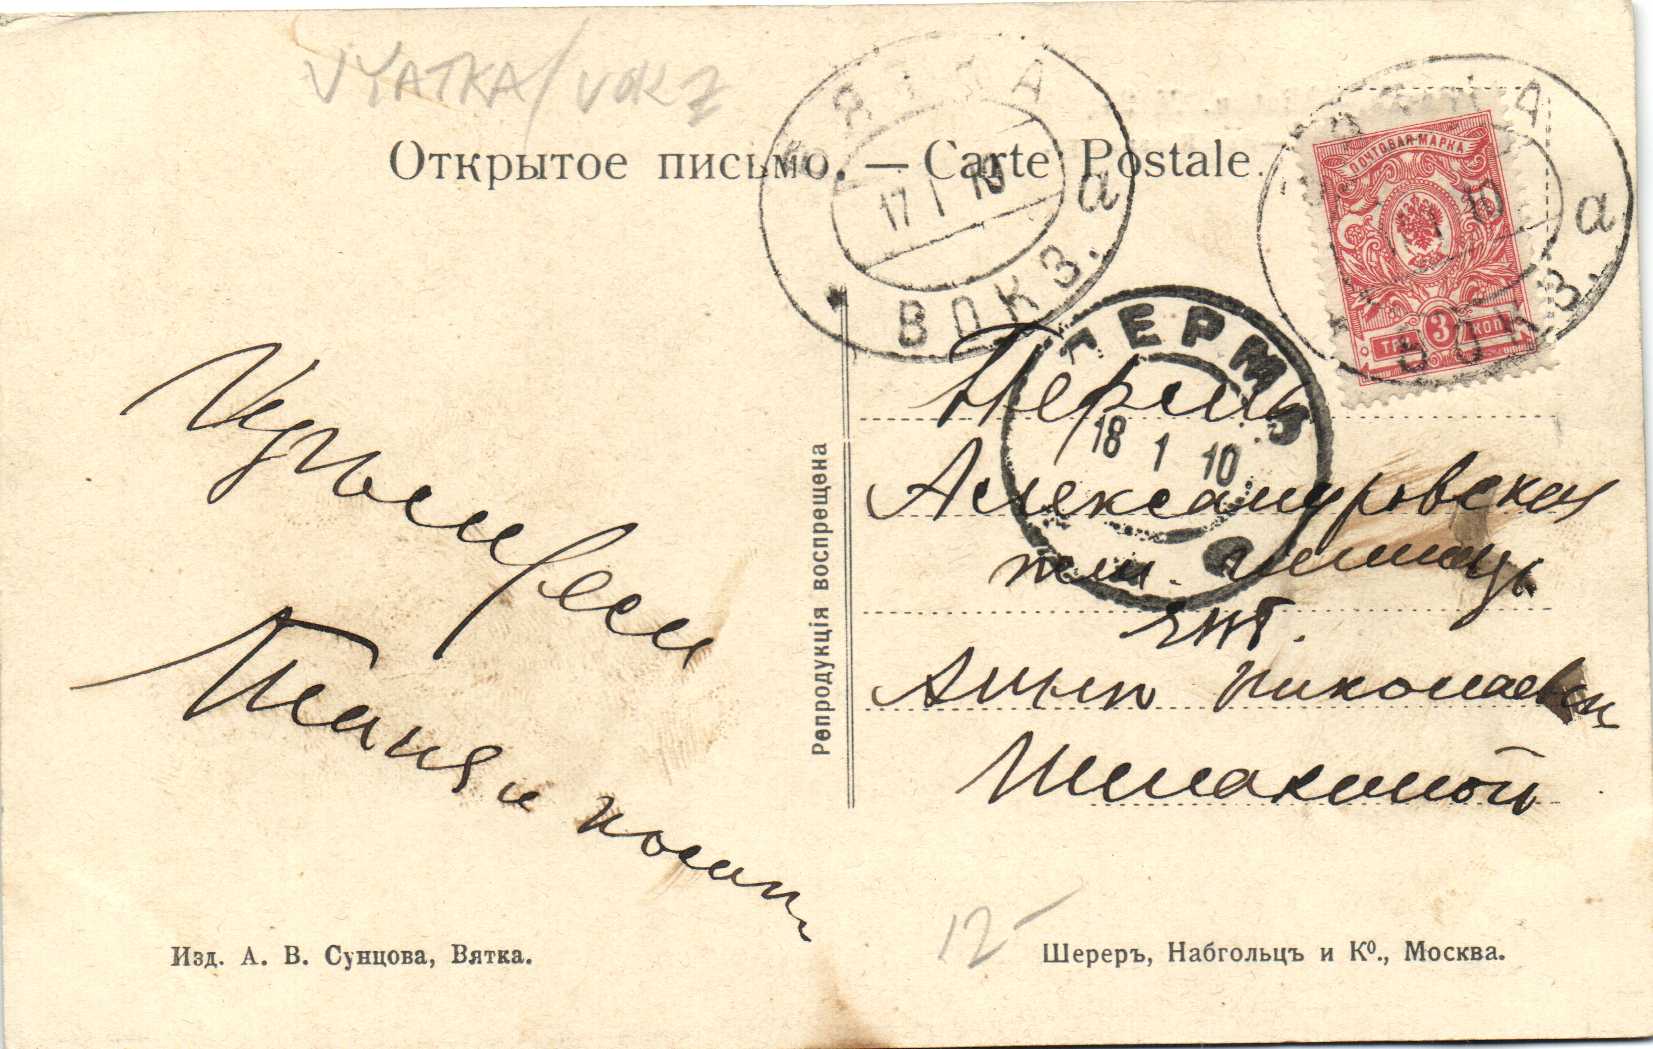 VYATKA/VOKZ
Открытое письмо. — Carte Postale.
ВЯТКА
17 1 10
а
ВОКЗ.
ПОЧТОВАЯ МАРКА
3
ТРИ КОП
10
а
ВОКЗ.
ПЕРМЬ
18 1 10
Пермь
Александровская
жен. гимназ
Анне Николаевне
Шмакиной
Таня и
Репродукція воспрещена
12-
Изд. А. В. Сунцова, Вятка.
Шереръ, Набгольцъ и Кº., Москва.